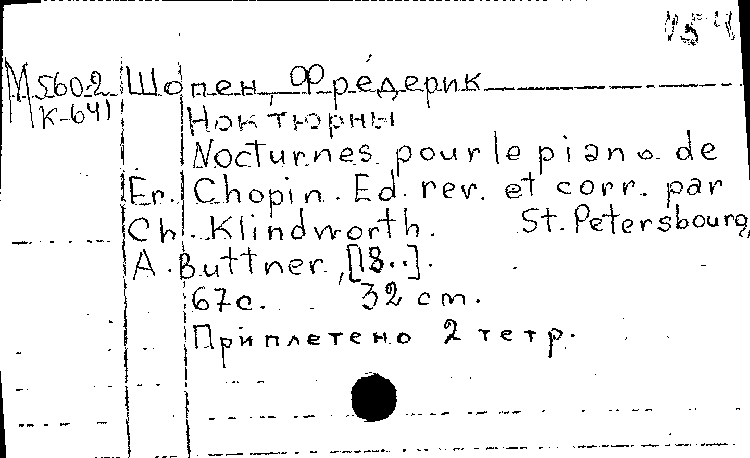 М 560-2 Шопен, Фредерик
К-641 Ноктюрны
Nocturnes pour le piano de
Er. Chopin. Ed. rev. et corr. par
Ch. Klindworth. St. Petersbourg,
A. Buttner, [18..].
67с. 32 cm.
Приплетено 2 тетр.